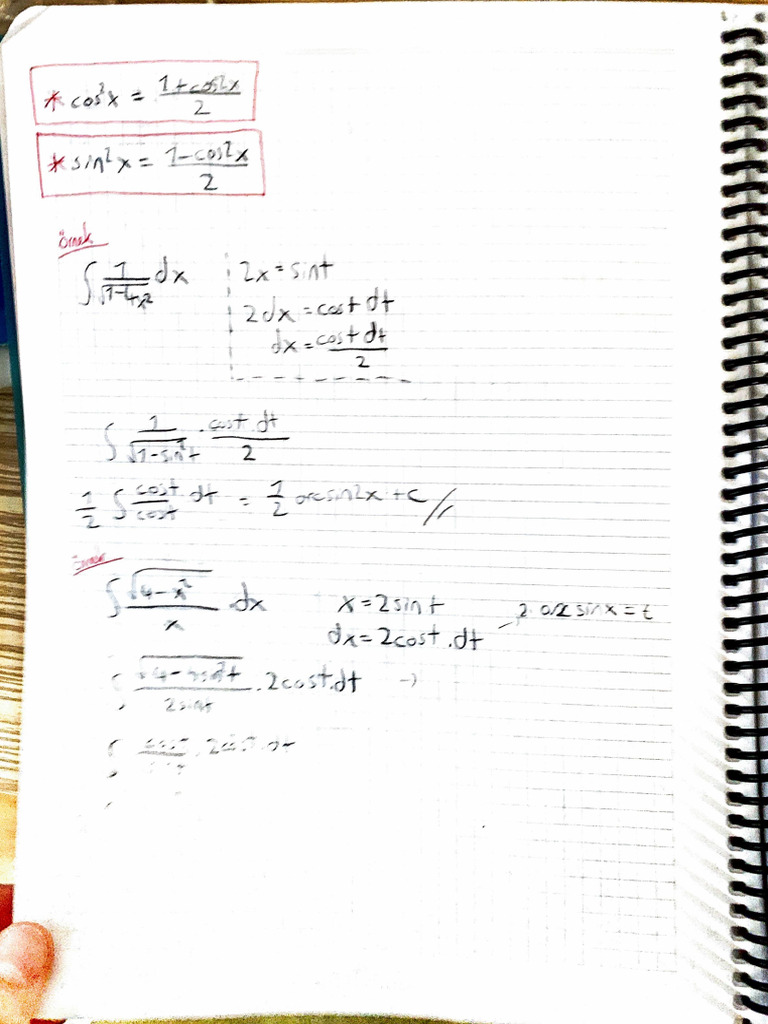 * cos²x = (1+cos2x)/2
* sin²x = (1-cos2x)/2
Örnek
∫ 1/√(1-4x²) dx
2x = sint
2dx = cost dt
dx = (cost dt)/2
∫ 1/√(1-sin²t) · (cost dt)/2
1/2 ∫ cost/cost dt = 1/2 arcsin2x + c //
Örnek
∫ √(4-x²)/x dx
x = 2sint
dx = 2cost.dt
2 arcsinx = t
∫ √(4-4sin²t)/2sint . 2cost.dt →